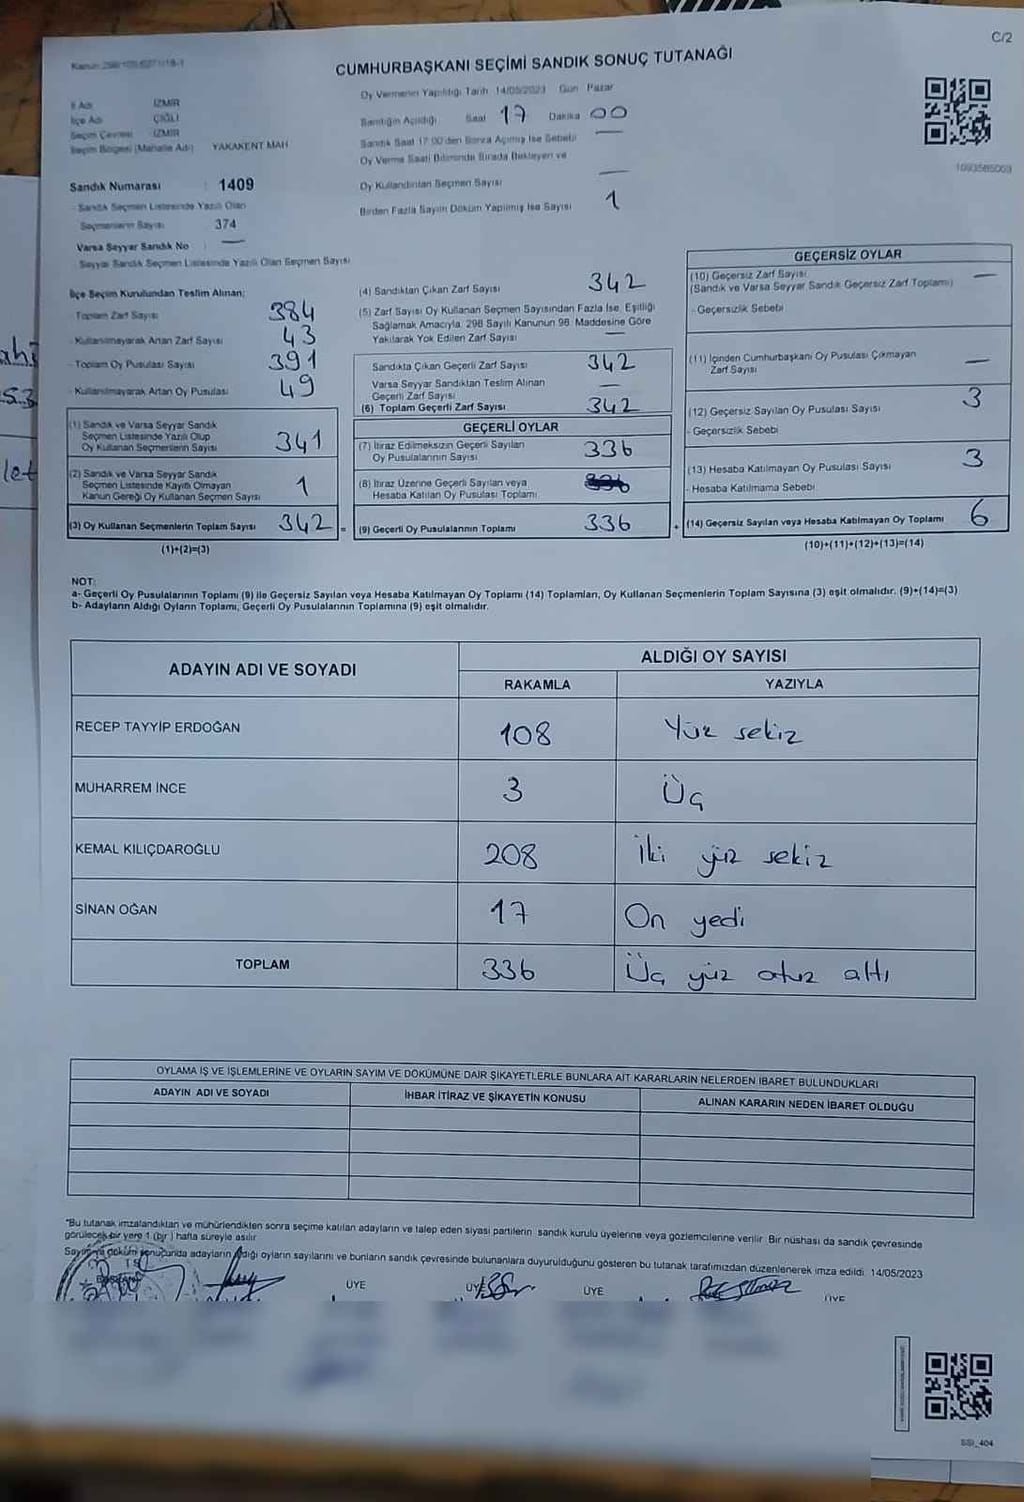 C/2
CUMHURBAŞKANI SEÇİMİ SANDIK SONUÇ TUTANAĞI
Oy Vermenin Yapıldığı Tarih 14/05/2023 Gün Pazar
İl Adı İZMİR
İlçe Adı ÇİĞLİ
Seçim Çevresi İZMİR
Seçim Bölgesi (Mahalle Adı) YAKAKENT MAH
Sandığın Açıldığı Saat 17 Dakika 00
Sandık Saat 17:00'den Sonra Açılmış İse Sebebi —
Oy Verme Saati Bitiminde Sırada Bekleyen ve
Oy Kullandırılan Seçmen Sayısı —
Birden Fazla Sayım Döküm Yapılmış İse Sayısı 1
1093585003
Sandık Numarası : 1409
- Sandık Seçmen Listesinde Yazılı Olan
Seçmenlerin Sayısı 374
Varsa Seyyar Sandık No : —
- Seyyar Sandık Seçmen Listesinde Yazılı Olan Seçmen Sayısı
İlçe Seçim Kurulundan Teslim Alınan;
- Toplam Zarf Sayısı 384
- Kullanılmayarak Artan Zarf Sayısı 43
- Toplam Oy Pusulası Sayısı 391
- Kullanılmayarak Artan Oy Pusulası 49
(1) Sandık ve Varsa Seyyar Sandık
Seçmen Listesinde Yazılı Olup
Oy Kullanan Seçmenlerin Sayısı 341
(2) Sandık ve Varsa Seyyar Sandık
Seçmen Listesinde Kayıtlı Olmayan
Kanun Gereği Oy Kullanan Seçmen Sayısı 1
(3) Oy Kullanan Seçmenlerin Toplam Sayısı 342 =
(1)+(2)=(3)
(4) Sandıktan Çıkan Zarf Sayısı 342
(5) Zarf Sayısı Oy Kullanan Seçmen Sayısından Fazla İse, Eşitliği
Sağlamak Amacıyla, 298 Sayılı Kanunun 98. Maddesine Göre
Yakılarak Yok Edilen Zarf Sayısı —
Sandıkta Çıkan Geçerli Zarf Sayısı 342
Varsa Seyyar Sandıktan Teslim Alınan
Geçerli Zarf Sayısı —
(6) Toplam Geçerli Zarf Sayısı 342
GEÇERLİ OYLAR
(7) İtiraz Edilmeksizin Geçerli Sayılan
Oy Pusulalarının Sayısı 336
(8) İtiraz Üzerine Geçerli Sayılan veya
Hesaba Katılan Oy Pusulası Toplamı
(9) Geçerli Oy Pusulalarının Toplamı 336 +
GEÇERSİZ OYLAR
(10) Geçersiz Zarf Sayısı —
(Sandık ve Varsa Seyyar Sandık Geçersiz Zarf Toplamı)
- Geçersizlik Sebebi
(11) İçinden Cumhurbaşkanı Oy Pusulası Çıkmayan
Zarf Sayısı —
(12) Geçersiz Sayılan Oy Pusulası Sayısı 3
- Geçersizlik Sebebi
(13) Hesaba Katılmayan Oy Pusulası Sayısı 3
- Hesaba Katılmama Sebebi
(14) Geçersiz Sayılan veya Hesaba Katılmayan Oy Toplamı 6
(10)+(11)+(12)+(13)=(14)
NOT:
a- Geçerli Oy Pusulalarının Toplamı (9) ile Geçersiz Sayılan veya Hesaba Katılmayan Oy Toplamı (14) Toplamları, Oy Kullanan Seçmenlerin Toplam Sayısına (3) eşit olmalıdır. (9)+(14)=(3)
b- Adayların Aldığı Oyların Toplamı, Geçerli Oy Pusulalarının Toplamına (9) eşit olmalıdır.
ADAYIN ADI VE SOYADI ALDIĞI OY SAYISI
RAKAMLA YAZIYLA
RECEP TAYYİP ERDOĞAN 108 Yüz sekiz
MUHARREM İNCE 3 Üç
KEMAL KILIÇDAROĞLU 208 İki yüz sekiz
SİNAN OĞAN 17 On yedi
TOPLAM 336 Üç yüz otuz altı
OYLAMA İŞ VE İŞLEMLERİNE VE OYLARIN SAYIM VE DÖKÜMÜNE DAİR ŞİKAYETLERLE BUNLARA AİT KARARLARIN NELERDEN İBARET BULUNDUKLARI
ADAYIN ADI VE SOYADI İHBAR İTİRAZ VE ŞİKAYETİN KONUSU ALINAN KARARIN NEDEN İBARET OLDUĞU
"Bu tutanak imzalandıktan ve mühürlendikten sonra seçime katılan adayların ve talep eden siyasi partilerin sandık kurulu üyelerine veya gözlemcilerine verilir. Bir nüshası da sandık çevresinde
görülecek bir yere 1 (bir) hafta süreyle asılır.
Sayım ve döküm sonucunda adayların aldığı oyların sayılarını ve bunların sandık çevresinde bulunanlara duyurulduğunu gösteren bu tutanak tarafımızdan düzenlenerek imza edildi. 14/05/2023
BAŞKAN ÜYE ÜYE ÜYE ÜYE
SSI_404